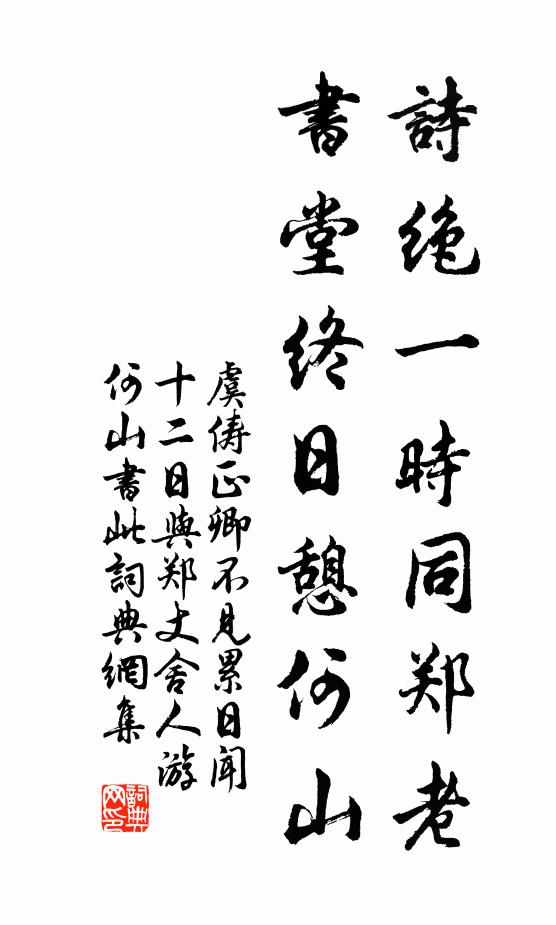 詩絶一時同郑老
書堂終日憩何山
虞儔正卿不見累日聞
十二日與郑丈舍人游
何山書此詞典網集
詞典网印